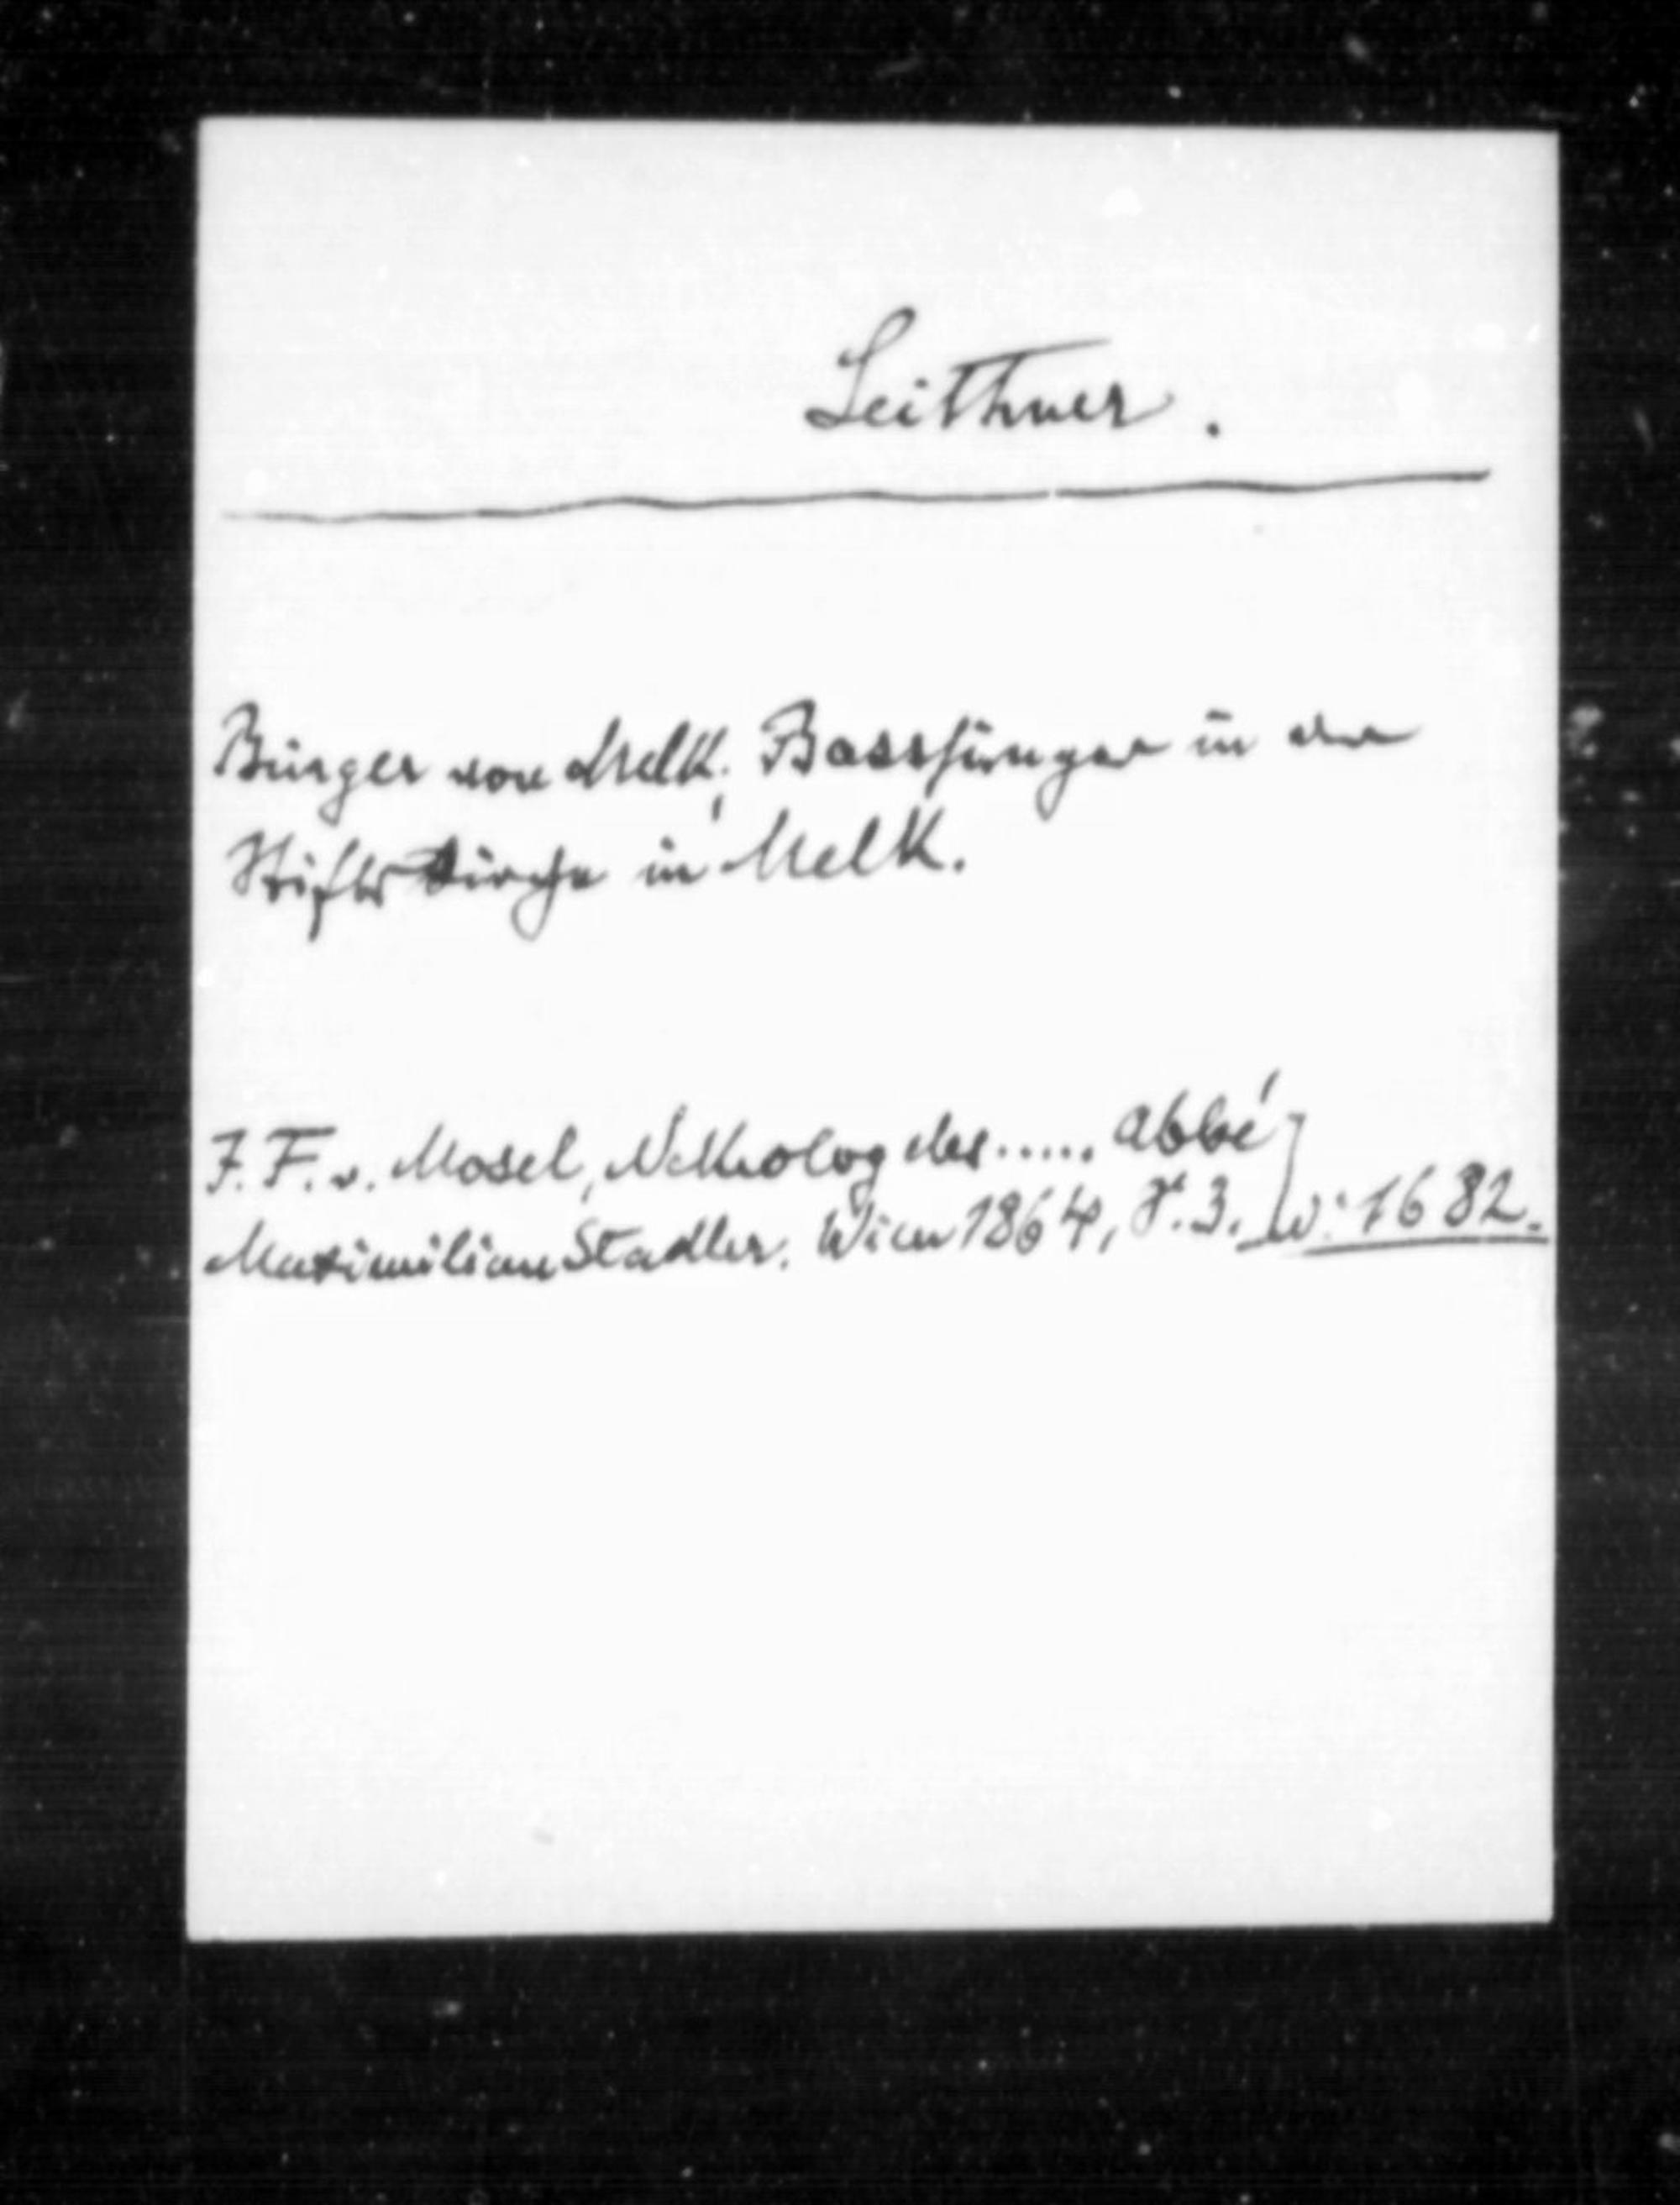 Leithner.
Bürger von Melk; Basssänger in der
Stiftskirche in Melk.
J. F. v. Mosel, Nekrolog des ..... Abbé
Maximilian Stadler. Wien 1864, S. 3. W: 1682.